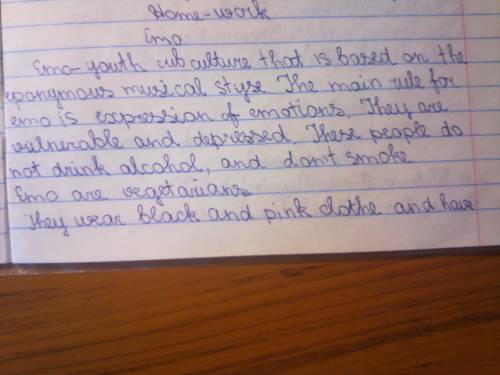 Home-work
Emo
Emo-youth subculture that is based on the
eponymous musical style. The main rule for
emo is expression of emotions. They are
vulnerable and depressed. These people do
not drink alcohol, and don't smoke
Emo are vegetarians.
They wear black and pink clothe and have